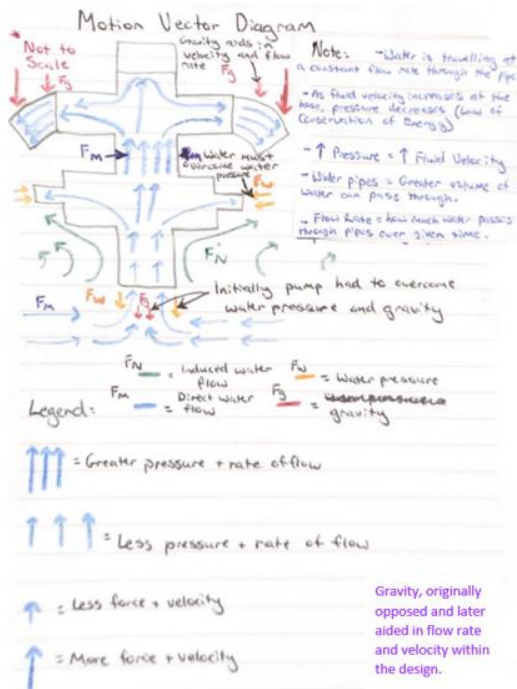 Motion Vector Diagram
Not to
Scale
Fg
Gravity aids in
velocity and flow
rate
Fg
Note: - Water is travelling at
a constant flow rate through the pipe
- As fluid velocity increases at the
base, pressure decreases (Law of
Conservation of Energy)
- ↑ Pressure = ↑ Fluid Velocity
- Water pipes = Greater volume of
water can pass through.
- Flow Rate = how much water passes
through pipes over given time.
Fm
Water must
overcome water
pressure
Fw
FN
Fm
Fw
Fg
Initially pump had to overcome
water pressure and gravity
FN = Induced water
flow
Fw = Water pressure
Legend:
Fm = Direct water
flow
Fg = gravity
= Greater pressure + rate of flow
= Less pressure + rate of flow
= Less force + velocity
= More force + velocity
Gravity, originally
opposed and later
aided in flow rate
and velocity within
the design.